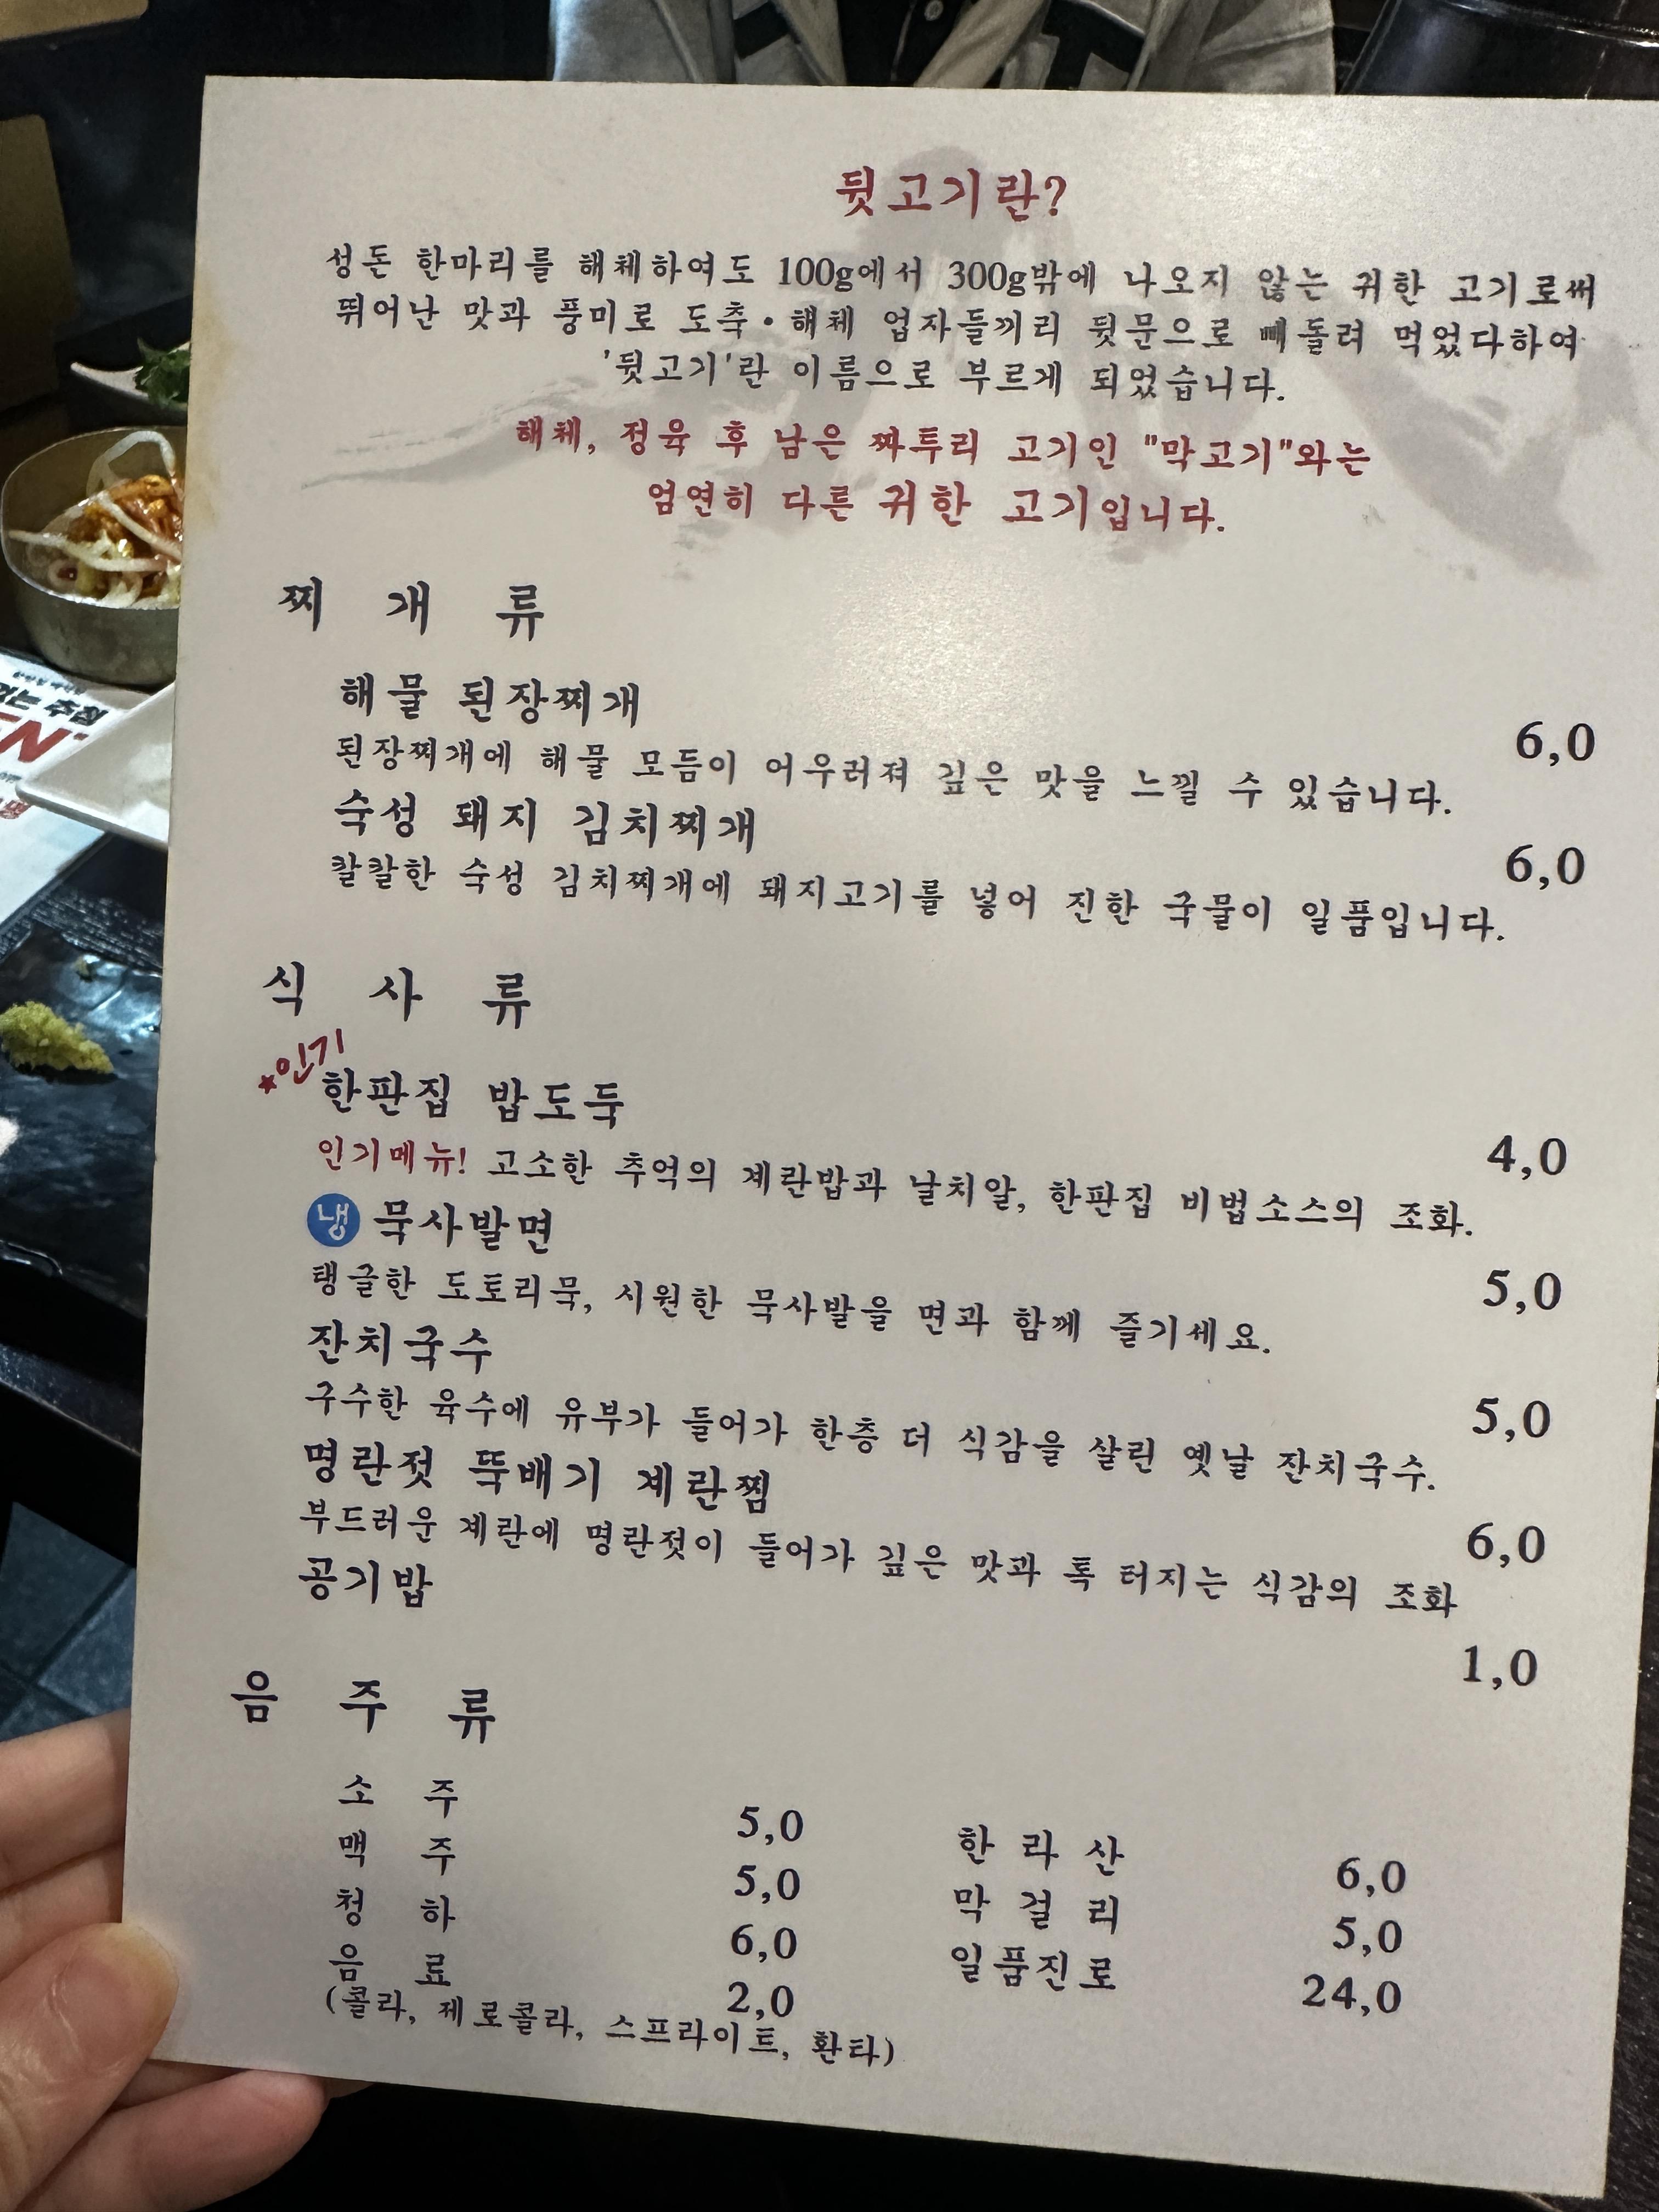 뒷고기란?
성돈 한마리를 해체하여도 100g에서 300g밖에 나오지 않는 귀한 고기로써
뛰어난 맛과 풍미로 도축·해체 업자들끼리 뒷문으로 빼돌려 먹었다하여
'뒷고기'란 이름으로 부르게 되었습니다.
해체, 정육 후 남은 짜투리 고기인 "막고기"와는
엄연히 다른 귀한 고기입니다.
찌 개 류
해물 된장찌개 6,0
된장찌개에 해물 모듬이 어우러져 깊은 맛을 느낄 수 있습니다.
숙성 돼지 김치찌개 6,0
칼칼한 숙성 김치찌개에 돼지고기를 넣어 진한 국물이 일품입니다.
식 사 류
★인기
한판집 밥도둑 4,0
인기메뉴! 고소한 추억의 계란밥과 날치알, 한판집 비법소스의 조화.
냉 묵사발면 5,0
탱글한 도토리묵, 시원한 묵사발을 면과 함께 즐기세요.
잔치국수 5,0
구수한 육수에 유부가 들어가 한층 더 식감을 살린 옛날 잔치국수.
명란젓 뚝배기 계란찜 6,0
부드러운 계란에 명란젓이 들어가 깊은 맛과 톡 터지는 식감의 조화
공기밥 1,0
음 주 류
소 주 5,0 한 라 산 6,0
맥 주 5,0 막 걸 리 5,0
청 하 6,0 일품진로 24,0
음 료 2,0
(콜라, 제로콜라, 스프라이트, 환타)